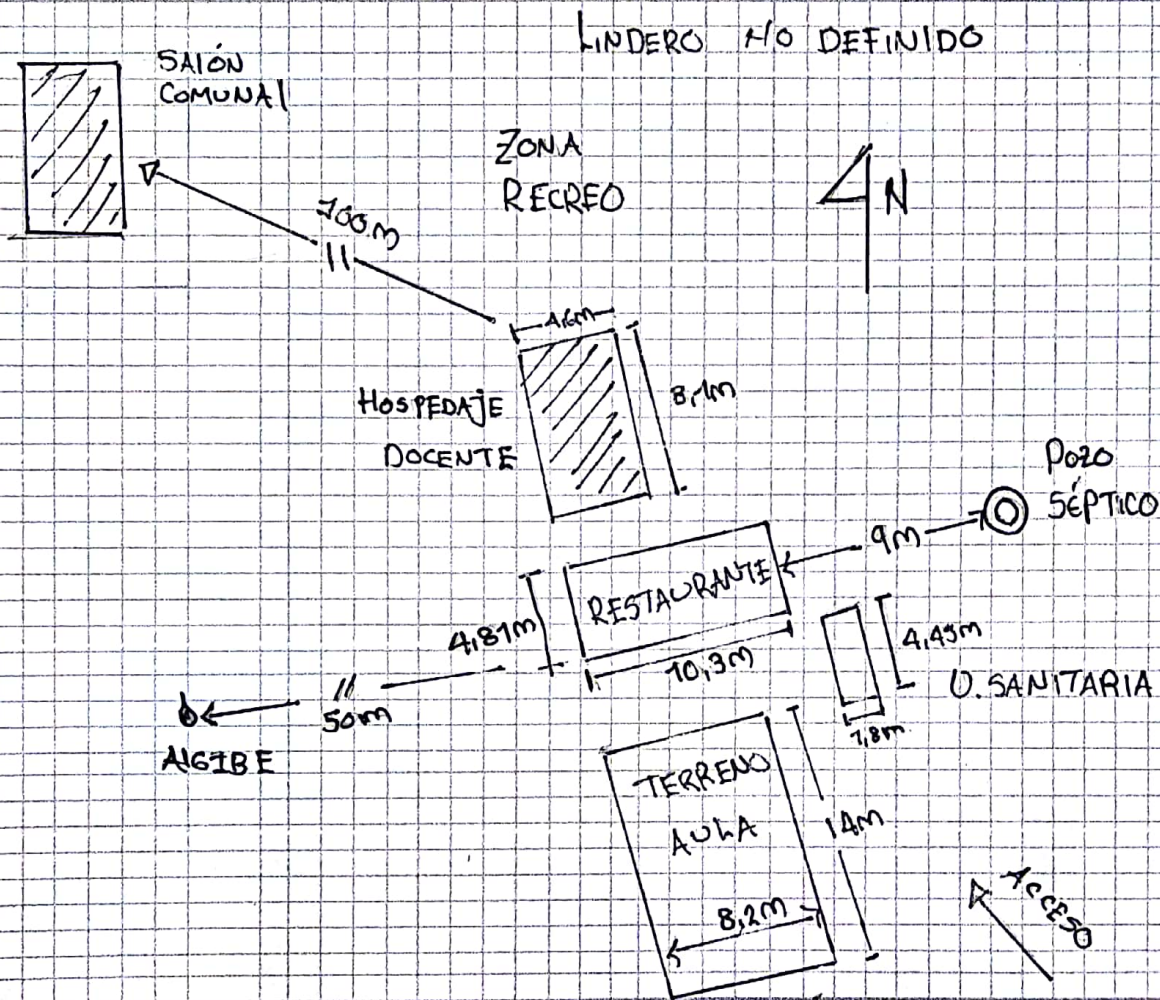 LINDERO NO DEFINIDO
SALÓN
COMUNAL
ZONA
RECREO
N
100m
4,6m
8,1m
HOSPEDAJE
DOCENTE
POZO
SÉPTICO
9m
RESTAURANTE
4,81m
10,3m
4,45m
U. SANITARIA
1,8m
50m
AlGIBE
TERRENO
AULA
14m
8,2m
ACCESO